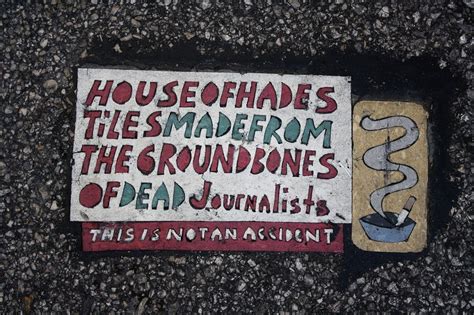 HOUSE OF HADES
TILES MADE FROM
THE GROUND BONES
OF DEAD Journalists
THIS IS NOT AN ACCIDENT